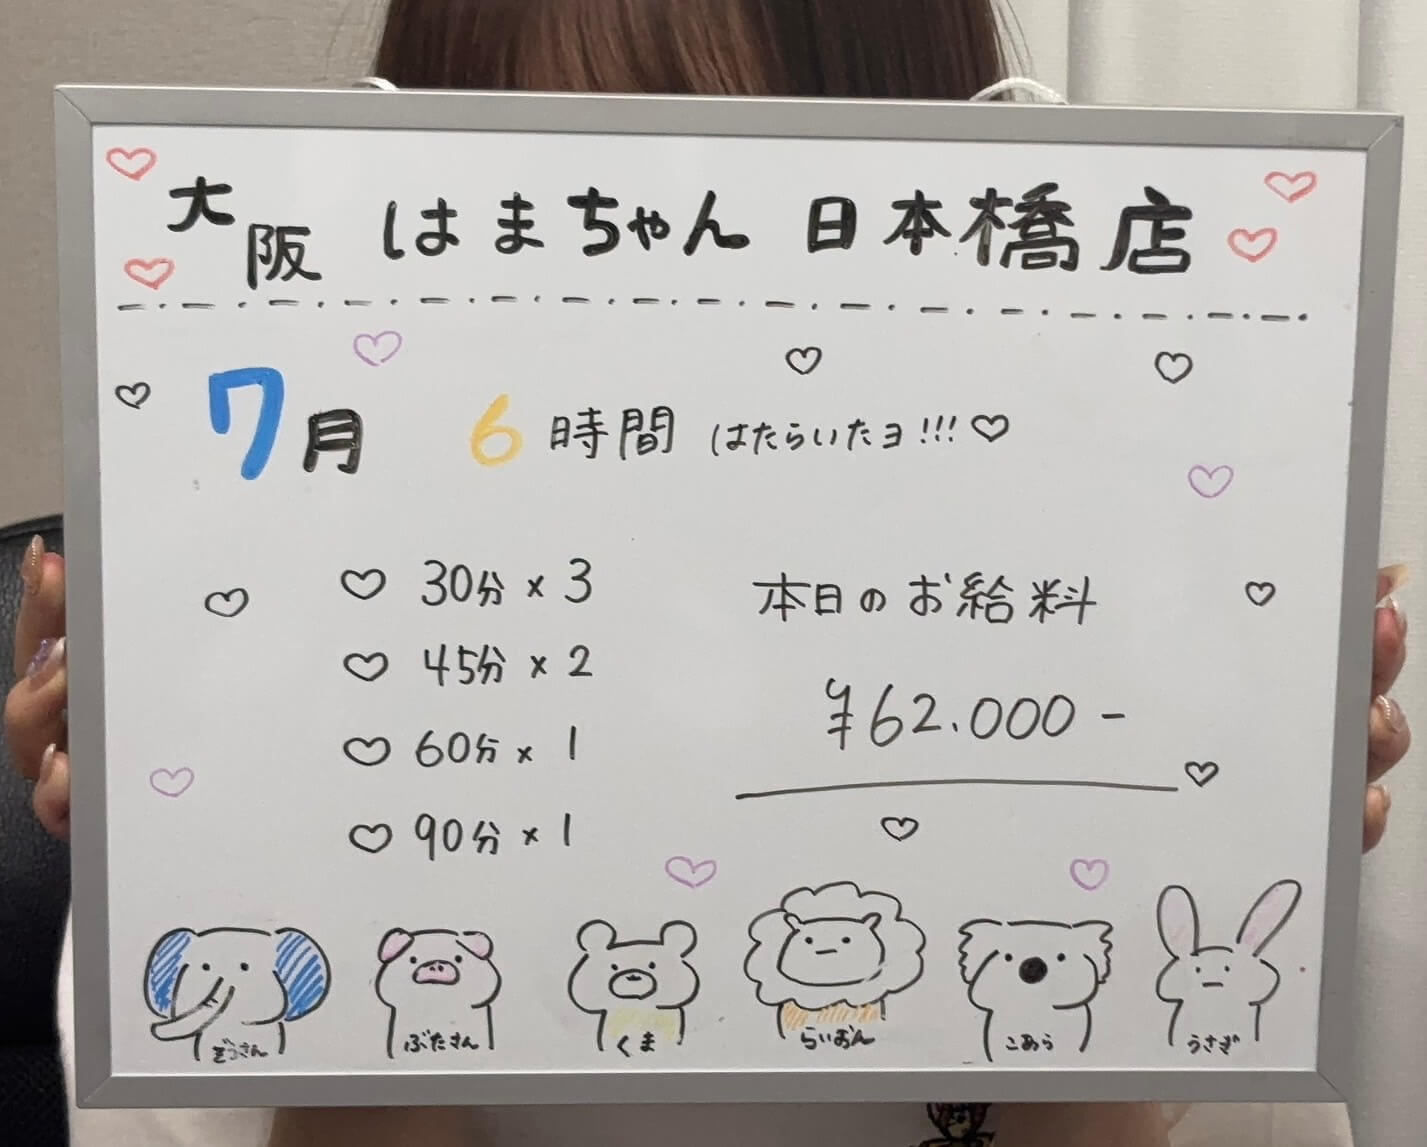 大阪 はまちゃん 日本橋店
7月 6時間 はたらいたヨ!!!♡
♡ 30分 × 3
♡ 45分 × 2
♡ 60分 × 1
♡ 90分 × 1
本日のお給料
¥62.000-
ぞうさん ぶたさん くま らいおん こあら うさぎ